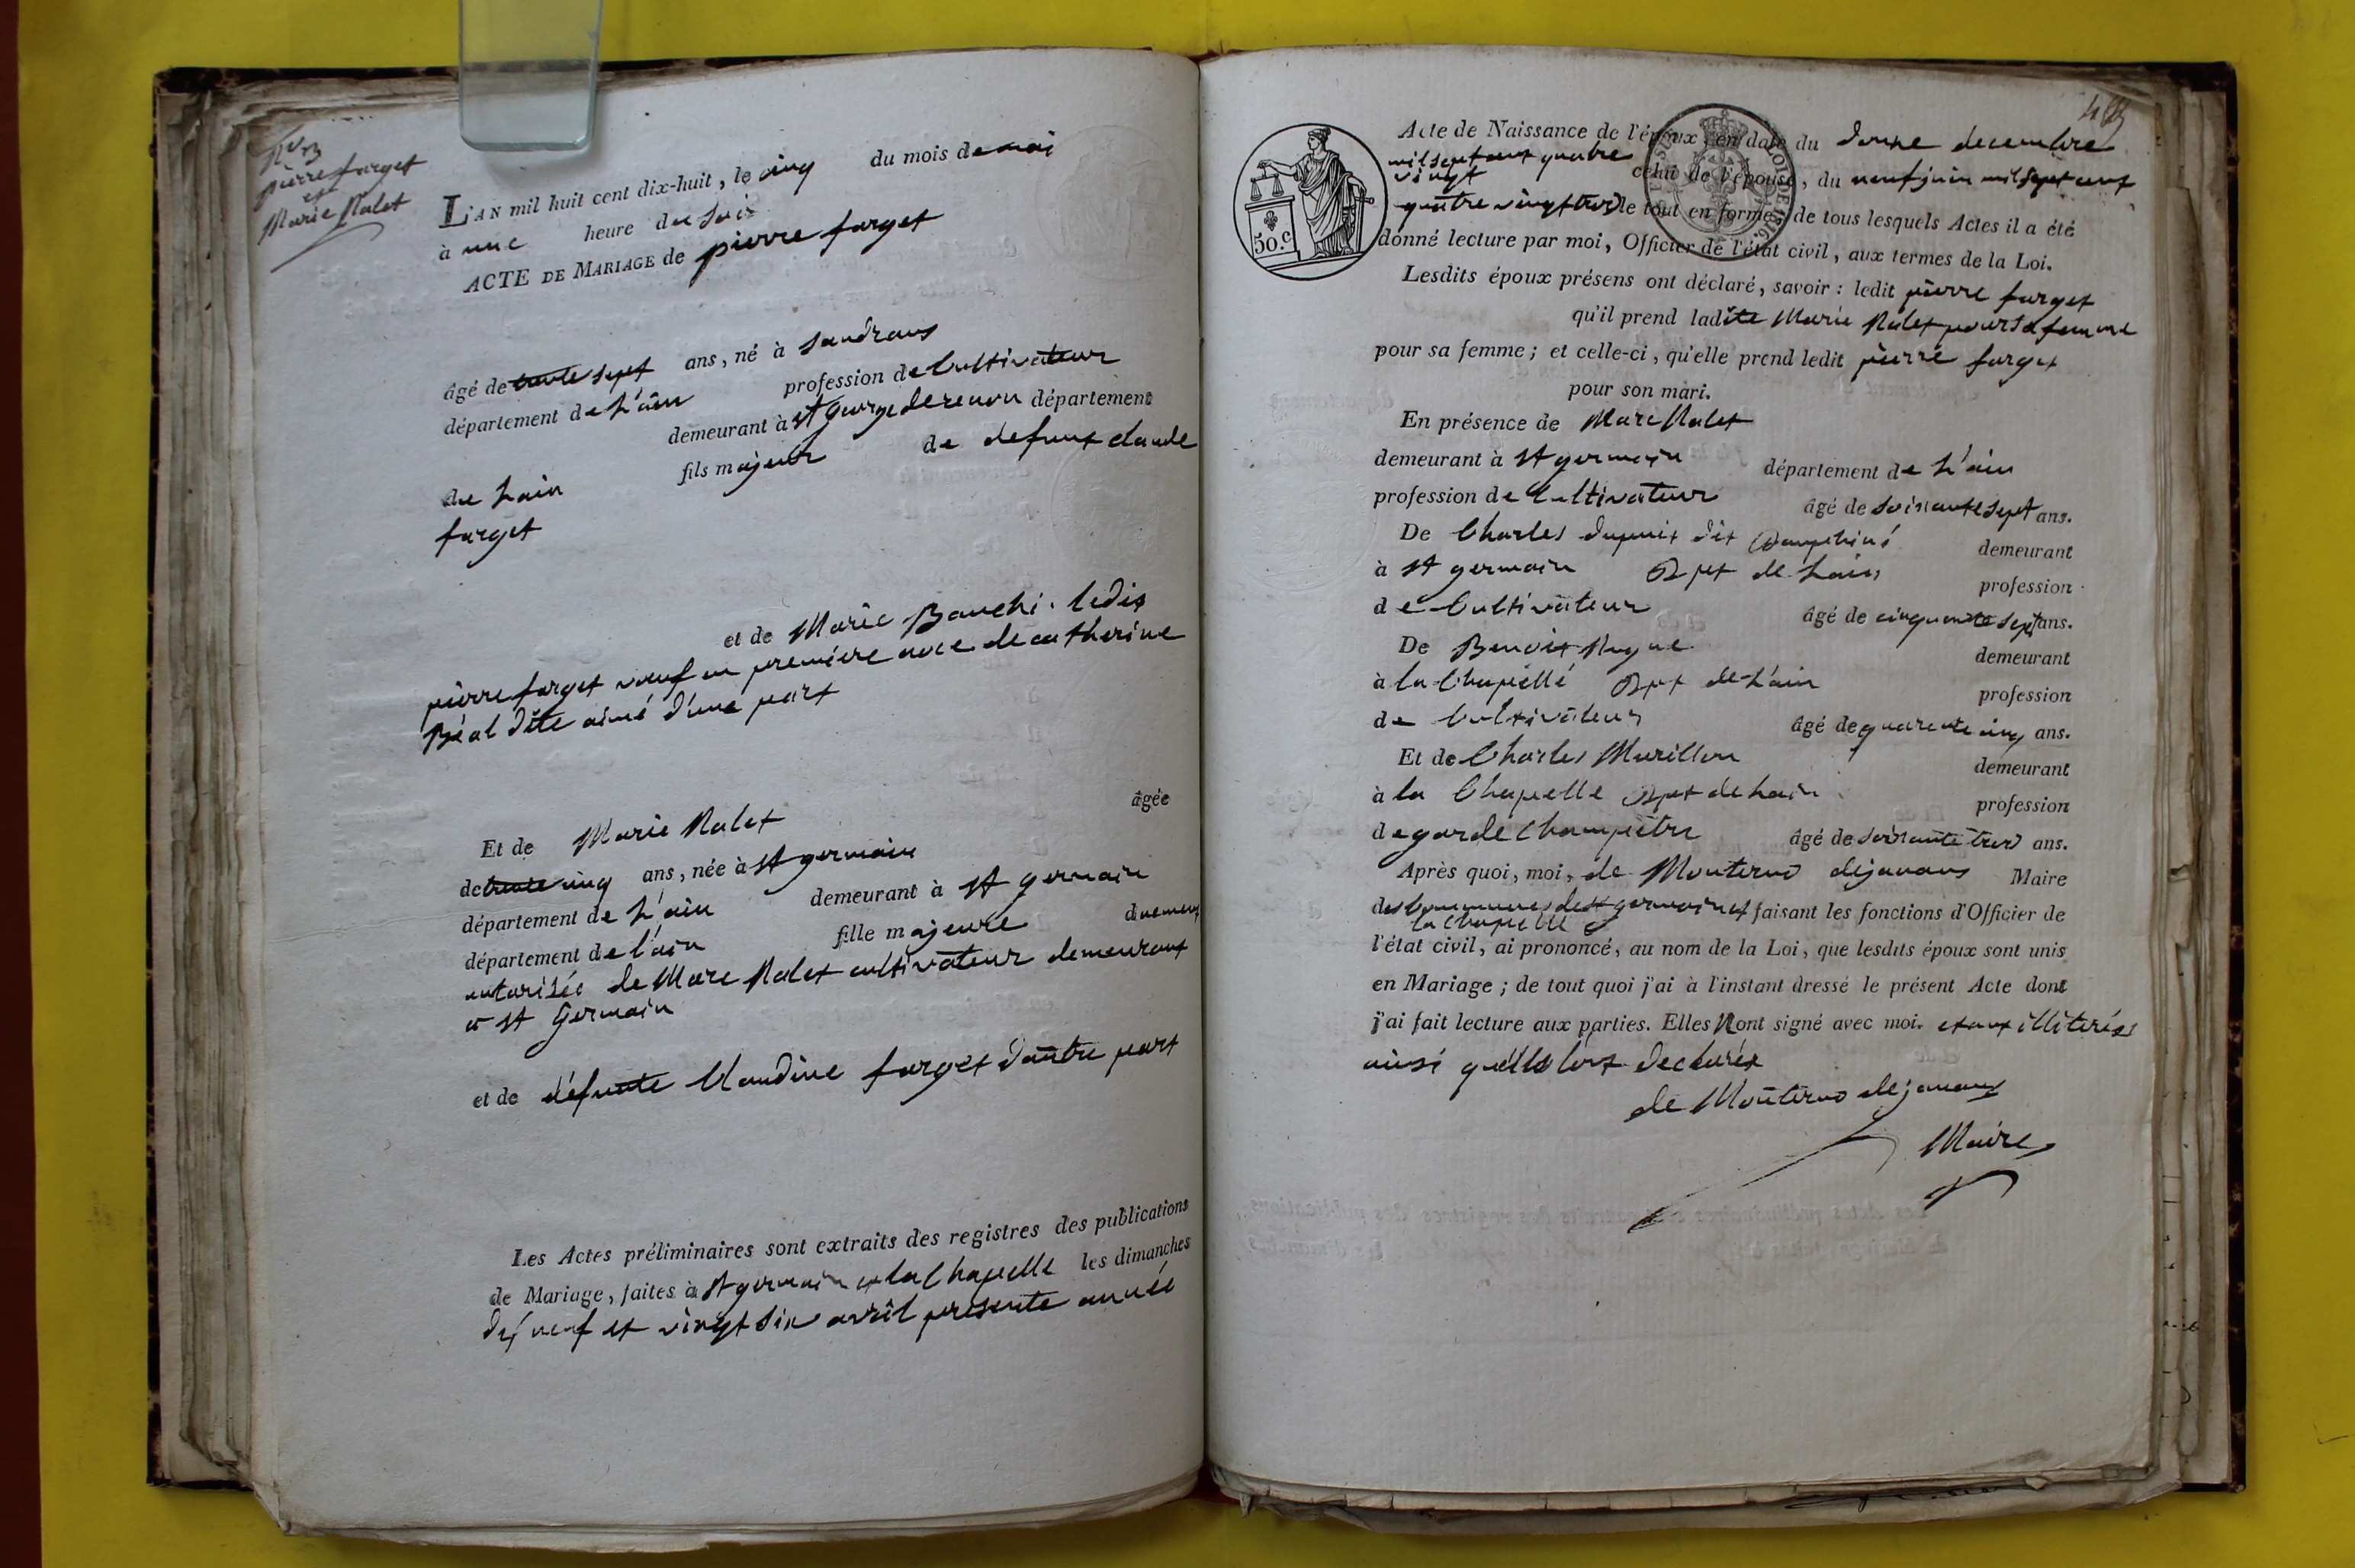 pierre farget
et
Marie Nalet
L'AN mil huit cent dix-huit, le cinq du mois de mai
à une heure du soir
ACTE DE MARIAGE de pierre farget
âgé de trente sept ans, né à Sandrans
département de L'ain profession de Cultivateur
demeurant à St George de renon département
de Lain fils majeur de defunt claude
farget
et de Marie Bauchi. ledit
pierre farget veuf en premiere noce de catherine
Béal dite aimé d'une part
Et de Marie Nalet âgée
de trente cinq ans, née à St germain
département de L'ain demeurant à St germain
département de l'ain fille majeure duement
autorisée de Marc Nalet cultivateur demeurant
a St Germain
et de défunte Claudine farget d'autre part
Les Actes préliminaires sont extraits des registres des publications
de Mariage, faites à St germain et la Chapelle les dimanches
dix neuf et vingt six avril presente année
Acte de Naissance de l'époux, en date du douze decembre
mil sept cent quatre
vingt celui de l'épouse, du neuf juin mil sept cent
quatre vingt trois le tout en forme; de tous lesquels Actes il a été
50.c
donné lecture par moi, Officier de l'état civil, aux termes de la Loi.
Lesdits époux présens ont déclaré, savoir : ledit pierre farget
qu'il prend ladite Marie Nalet pour sa femme
pour sa femme; et celle-ci, qu'elle prend ledit pierre farget
pour son mari.
En présence de Marc Nalet
demeurant à St germain département de L'ain
profession de Cultivateur âgé de soixante sept ans.
De Charles dupuit dit Dauphiné demeurant
à St germain Dpt de Lain profession
de Cultivateur âgé de cinquante sept ans.
De Benoit Nugue demeurant
à la Chapelle Dpt de L'ain profession
de Cultivateur âgé de quarente cinq ans.
Et de Charles Murillon demeurant
à la Chapelle Dpt de Lain profession
de garde Champetre âgé de soixante trois ans.
Après quoi, moi, de Monterno dejanans Maire
des Communes de St germain et faisant les fonctions d'Officier de
la Chapelle
l'état civil, ai prononcé, au nom de la Loi, que lesdits époux sont unis
en Mariage ; de tout quoi j'ai à l'instant dressé le présent Acte dont
j'ai fait lecture aux parties. Elles Nont signé avec moi. etant illiterées
ainsi quelle lont declarée
de Monterno dejanans
Maire